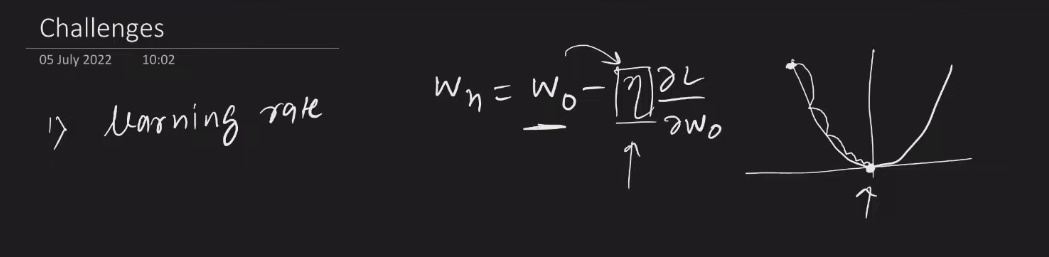 Challenges
05 July 2022 10:02
1) learning rate
Wn = W0 - η ∂L/∂W0